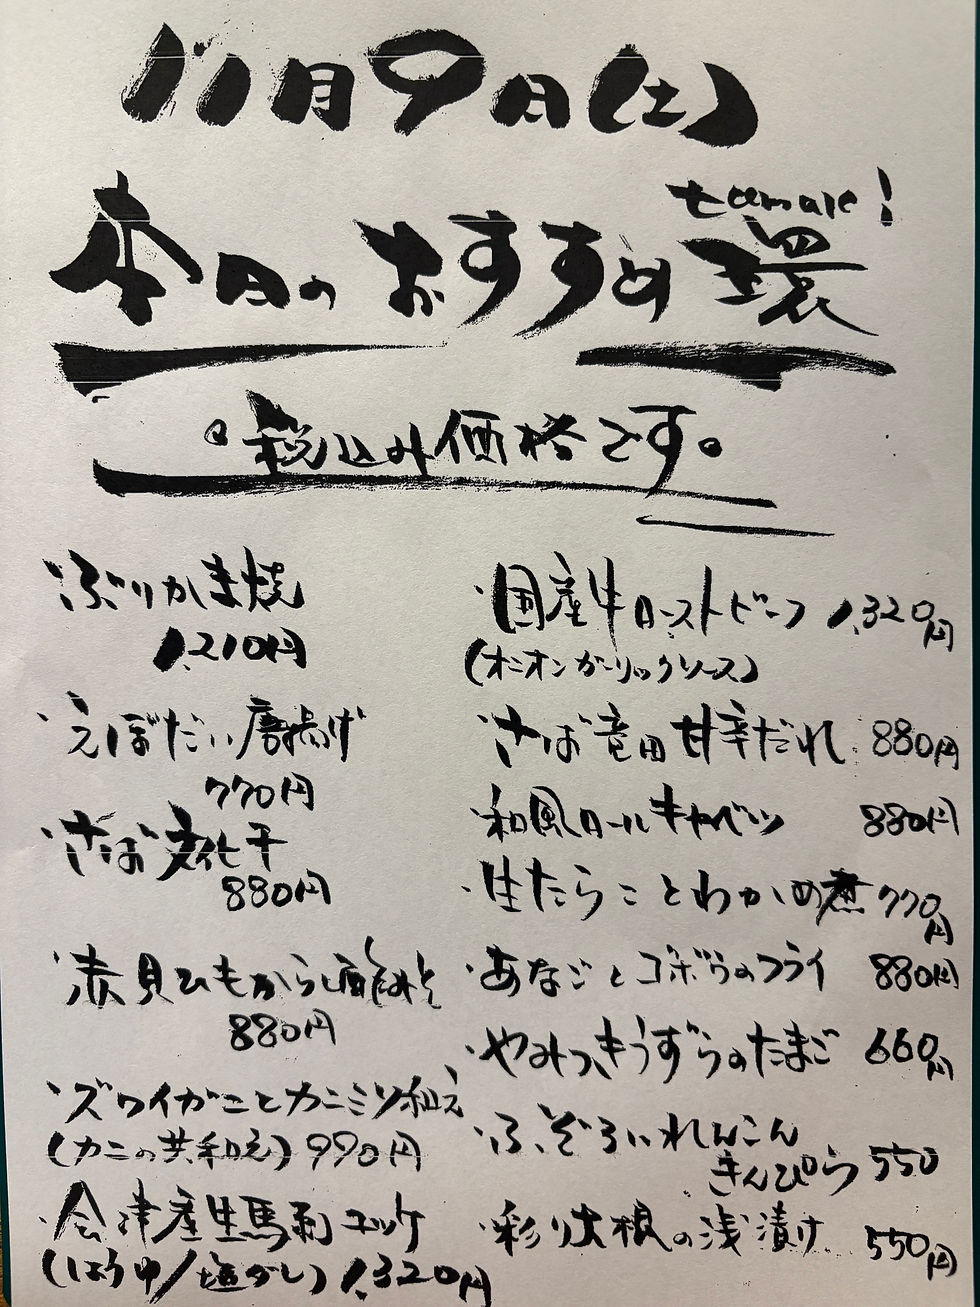 11月9日(土)
tamaie!
本日のおすすめ 環
。税込み価格です。
・ぶりかま焼
1,210円
・えぼだい唐揚げ
770円
・さば文化干
880円
・赤貝ひもからし酢みそ
880円
・ズワイガニとカニミソ和え
(カニの共和え) 990円
・会津産生馬刺ユッケ
(しょうゆ/塩だし) 1,320円
・国産牛ローストビーフ 1,320円
(オニオンガーリックソース)
・さば竜田甘辛だれ 880円
・和風ロールキャベツ 880円
・生たらことわかめ煮 770円
・あなごとゴボウのフライ 880円
・やみつきうずらのたまご 660円
・ふぞろいれんこん
きんぴら 550
・彩り大根の浅漬け 550円